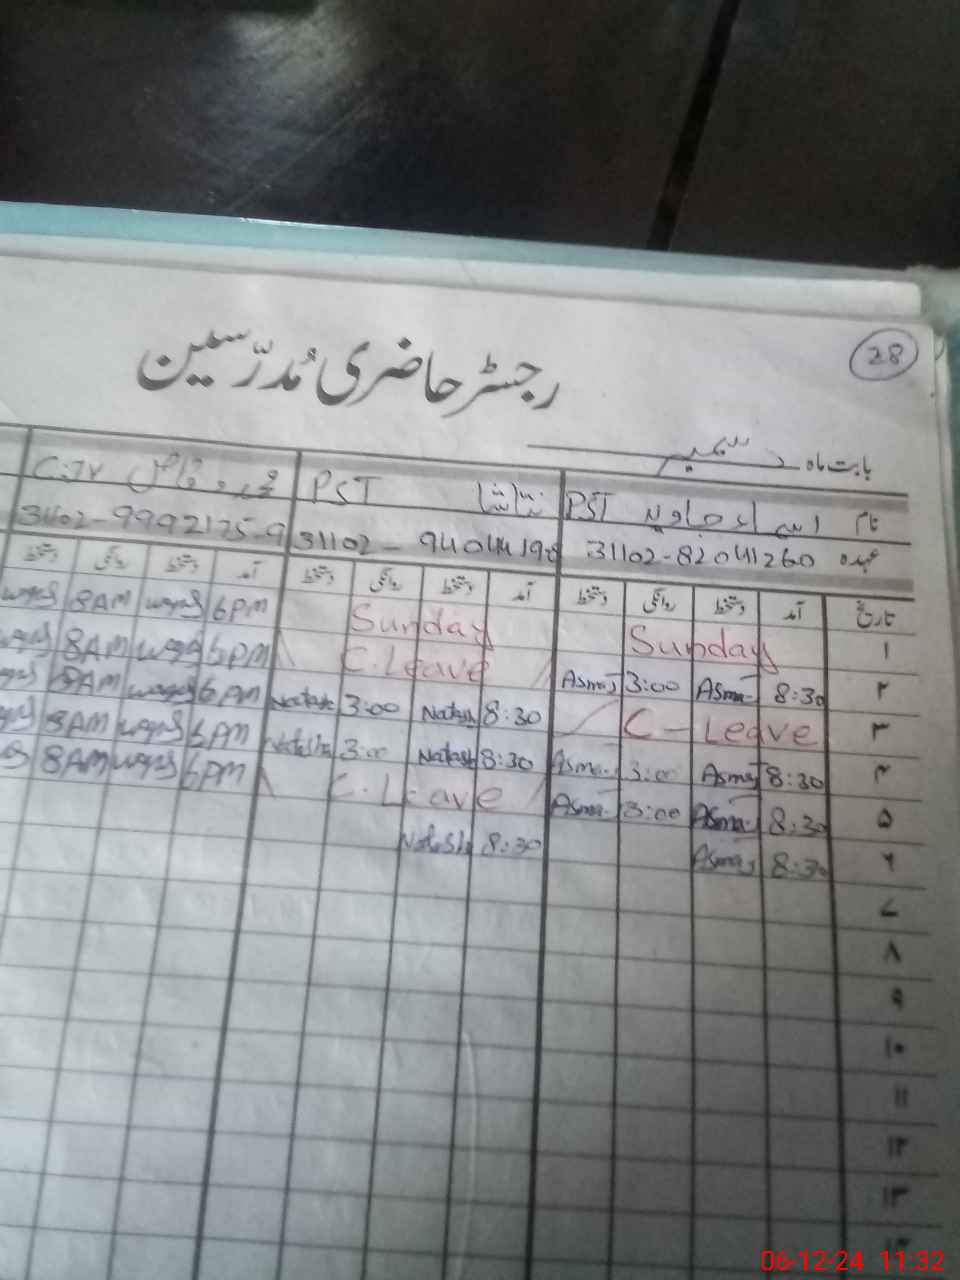 28
رجسٹر حاضری مُدرّسین
بابت ماہ دسمبر
نام اسماء جاوید PST نتاشا PST C.IV
عہدہ 31102-82041260 31102-9404419 31102-9992175-9
تاریخ آمد دستخط روانگی دستخط آمد دستخط روانگی دستخط آمد دستخط روانگی دستخط
۱ Sunday Sunday 6PM 8AM
۲ 8:30 Asma 3:00 Asma C.Leave 6PM 8AM
۳ C-Leave 8:30 Natash 3:00 Natash 6PM 8AM
۴ 8:30 Asma 3:00 Asma 8:30 Natash 3:00 Natasha 6PM 8AM
۵ 8:30 Asma 3:00 Asma C.Leave 6PM 8AM
۶ 8:30 Asma 8:30 Natash
۷
۸
۹
۱۰
۱۱
۱۲
۱۳
06-12-24 11:32